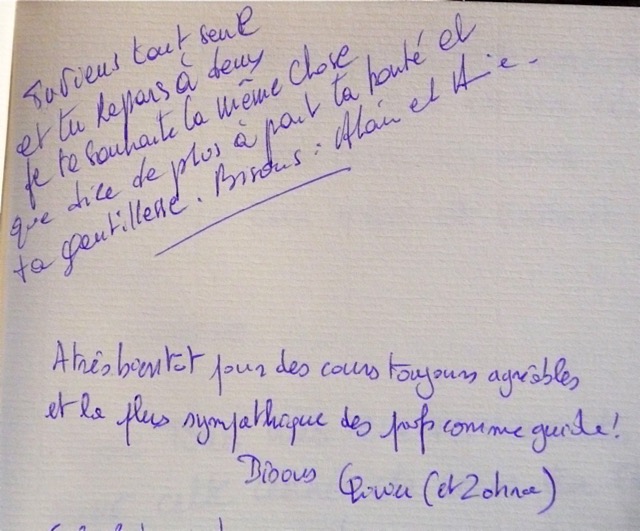 Tu viens tout seule
et tu repars à deux
Je te souhaite la même chose
que dire de plus à part ta bonté et
ta gentillesse. Bisous : Alain et
A très bientôt pour des cours toujours agréables
et la plus sympathique des profs comme guide !
Bisous (et Zohra)